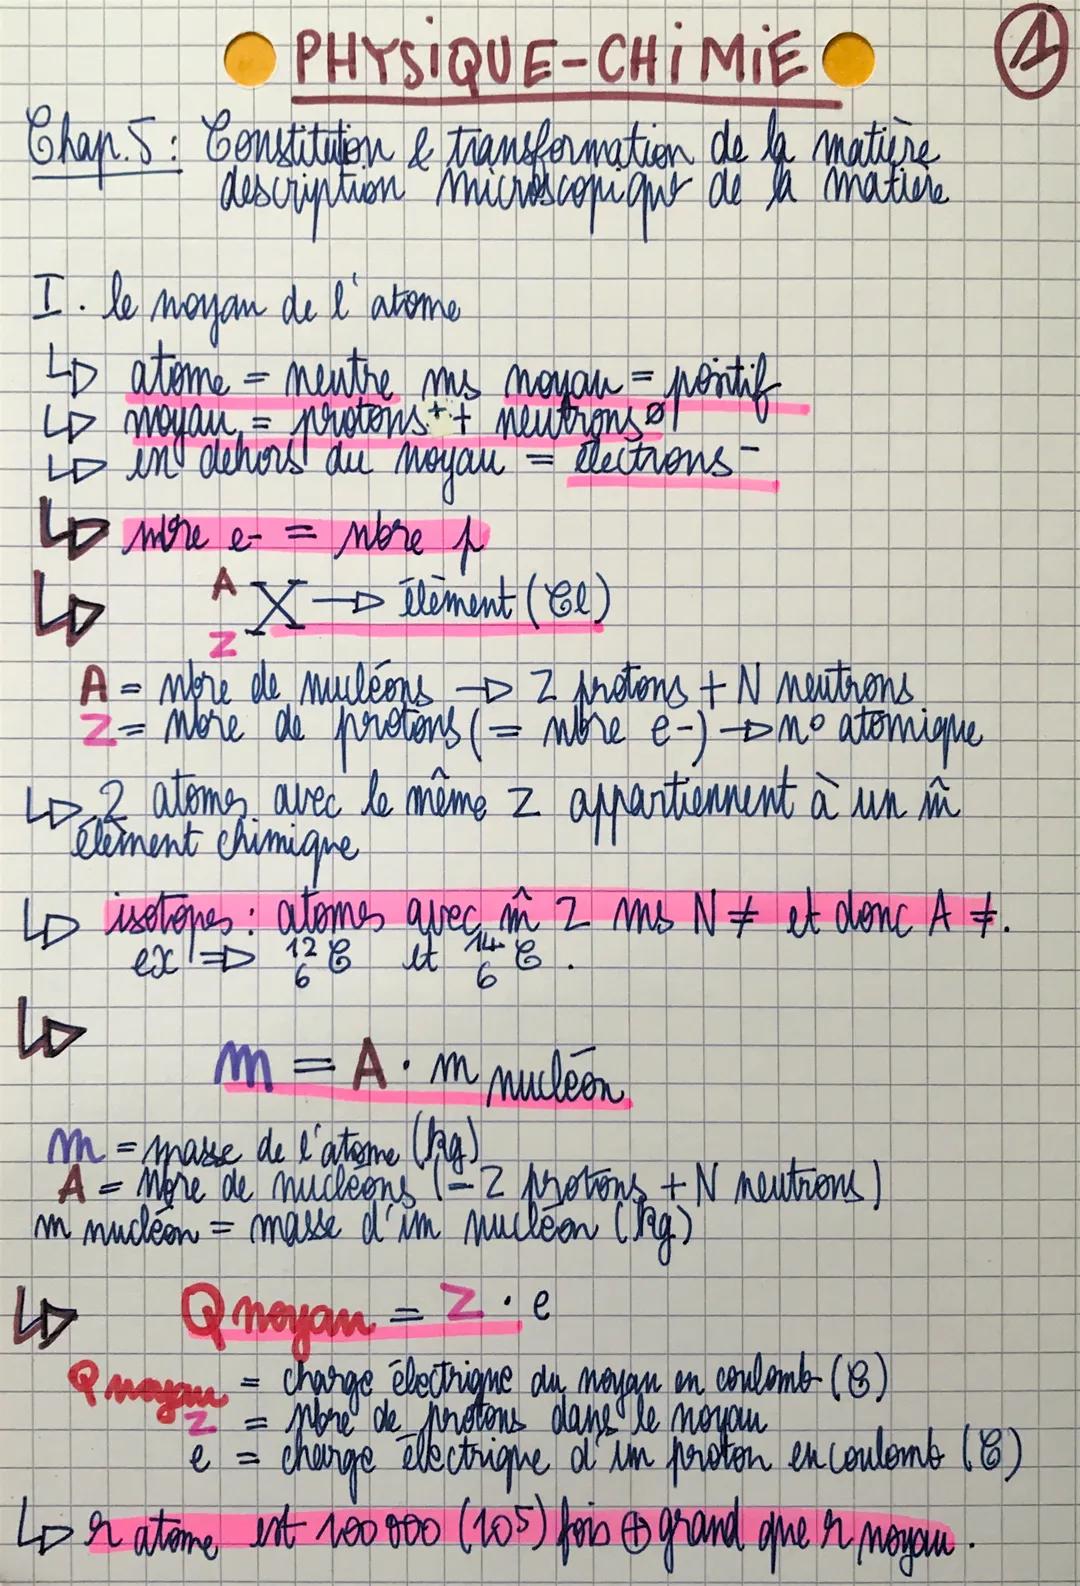 PHYSIQUE-CHIMIE
1
Chap. 5 : Constitution & transformation de la matière
description microscopique de la matière
I. le noyau de l'atome
↳ atome = neutre ms noyau = positif
↳ noyau = protons + + neutrons ø
↳ en dehors du noyau = électrons -
↳ nbre e- = nbre p
↳ A Z X → élément (Cl)
A = nbre de nucléons → Z protons + N neutrons
Z = nbre de protons (= nbre e-) → n° atomique
↳ 2 atomes avec le même Z appartiennent à un m̂
élément chimique
↳ isotopes : atomes avec m̂ Z ms N ≠ et donc A ≠.
ex ⇒ 12 6 C et 14 6 C.
↳ m = A · m nucléon
m = masse de l'atome (kg)
A = nbre de nucléons (= Z protons + N neutrons)
m nucléon = masse d'un nucléon (kg)
↳ Q noyau = Z · e
Q noyau = charge électrique du noyau en coulomb (C)
Z = nbre de protons dans le noyau
e = charge électrique d'un proton en coulomb (C)
↳ r atome est 100 000 (10⁵) fois ⊕ grand que r noyau.